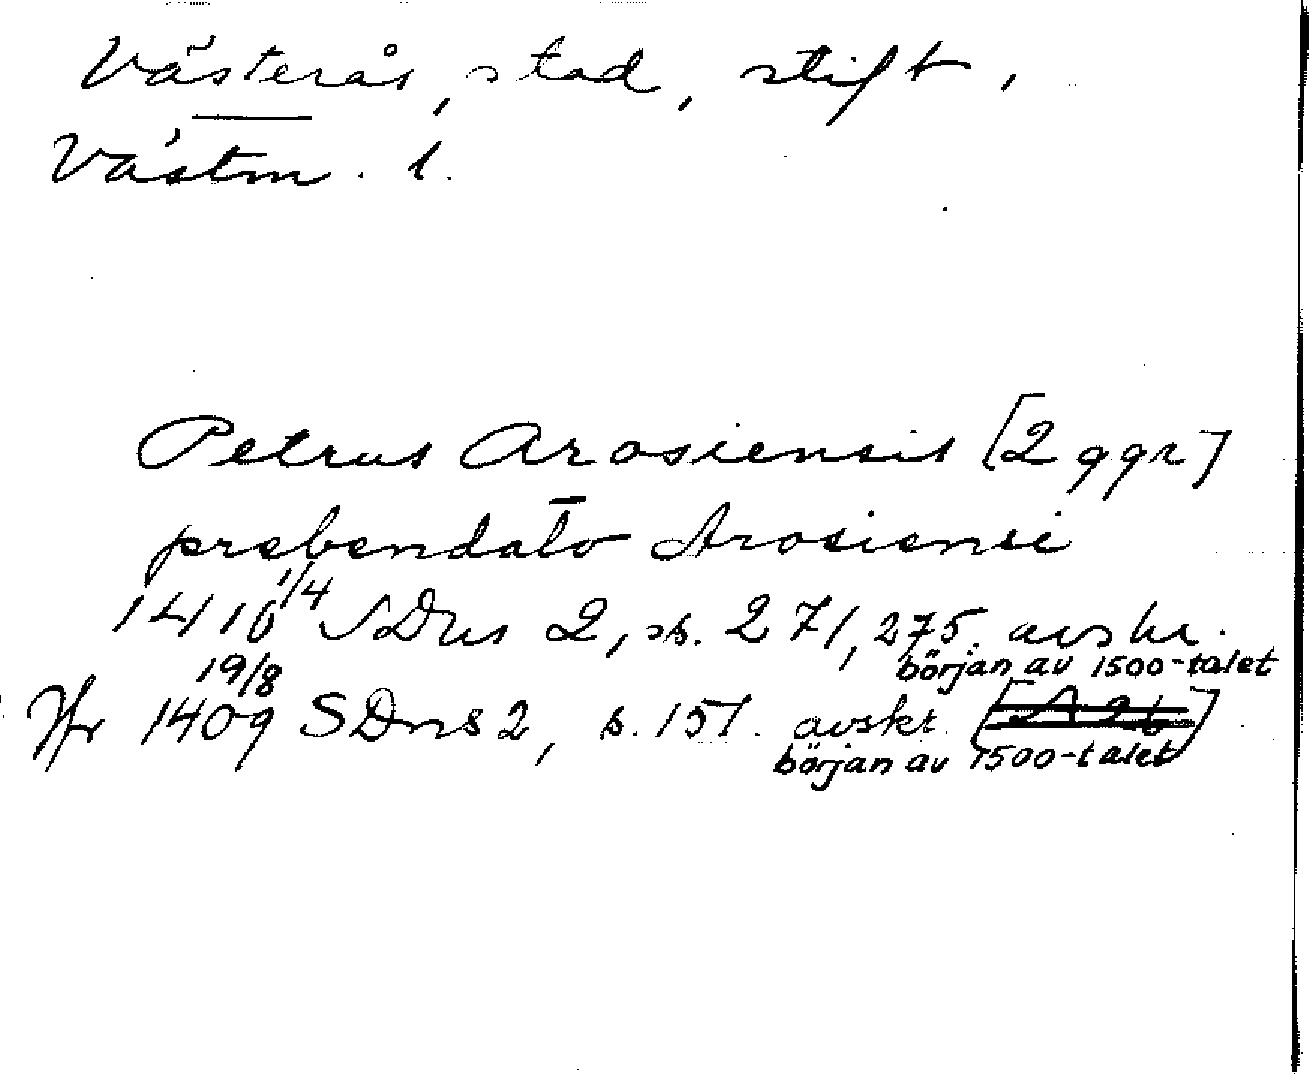 Västerås, stad, stift,
Västm. l.
Petrus Arosiensis [2 ggr]
prebendato Arosiensi
1410 1/4 SDns 2, ss. 271, 275. avskr.
början av 1500-talet
Jfr 1409 19/8 SDns 2, s. 151. avskr.
början av 1500-talet